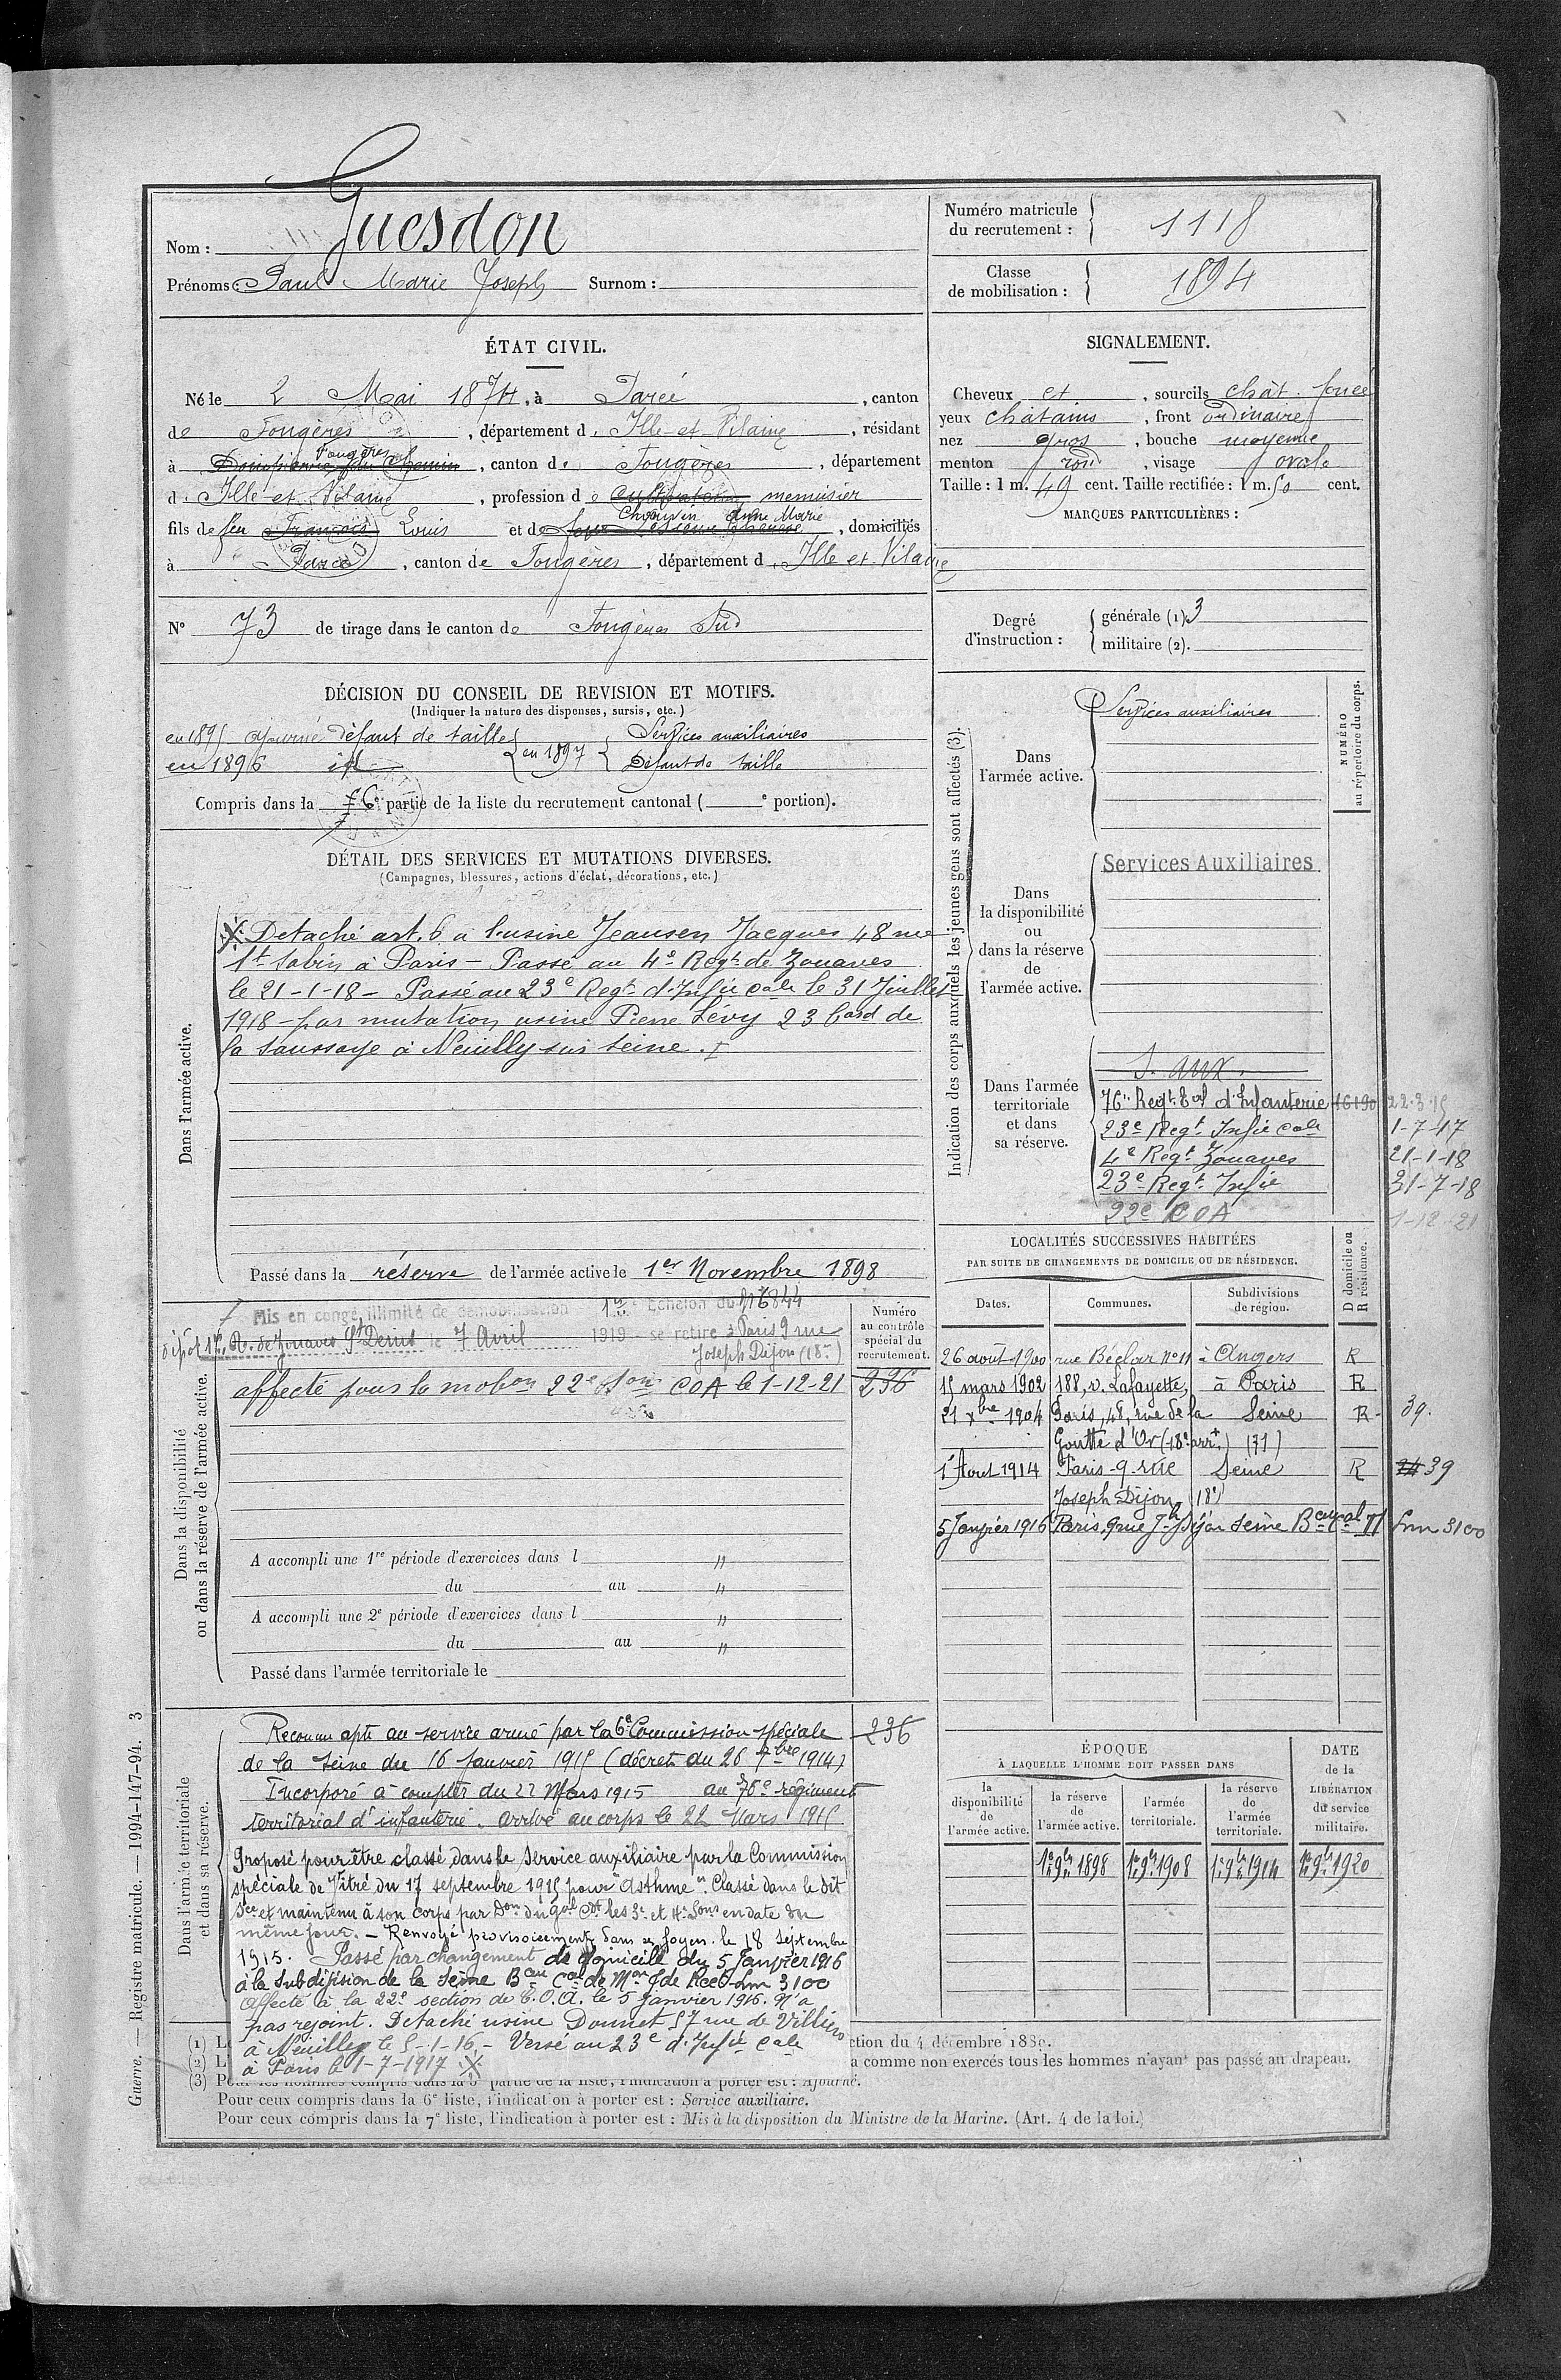 Nom : Guesdon
Prénoms : Paul Marie Joseph Surnom :
Numéro matricule
du recrutement : 1118
Classe
de mobilisation : 1894
ÉTAT CIVIL.
Né le 2 Mai 1874, à Parcé, canton
de Fougères, département d Ille-et-Vilaine, résidant
Fougères
à Chemin, canton de Fougères, département
d Ille et Vilaine, profession de cultivateur menuisier
Chauvin Anne Marie
fils de feu François Louis et de, domiciliés
à Parcé, canton de Fougères, département d Ille et Vilaine
N° 73 de tirage dans le canton de Fougères Sud
SIGNALEMENT.
Cheveux et, sourcils chât. foncé
yeux châtains, front ordinaire
nez gros, bouche moyenne
menton rond, visage ovale
Taille : 1 m. 49 cent. Taille rectifiée : 1 m. 50 cent.
MARQUES PARTICULIÈRES :
Degré
d'instruction :
générale (1) 3
militaire (2).
DÉCISION DU CONSEIL DE REVISION ET MOTIFS.
(Indiquer la nature des dispenses, sursis, etc.)
en 1895 ajourné défaut de taille
en 1896 id
en 1897
Services auxiliaires
Défaut de taille
Compris dans la 6e partie de la liste du recrutement cantonal ( e portion).
DÉTAIL DES SERVICES ET MUTATIONS DIVERSES.
(Campagnes, blessures, actions d'éclat, décorations, etc.)
Dans l'armée active.
X Detaché art. 6 à l'usine Jeansen Jacques 48 rue
St Sabin à Paris - Passé au 4e Regt de Zouaves
le 21-1-18 - Passé au 23e Regt d'Infie cale le 31 Juillet
1918 - par mutation usine Pierre Lévy 23 bard de
la Saussaye à Neuilly sur Seine.
Passé dans la réserve de l'armée active le 1er Novembre 1898
Indication des corps auxquels les jeunes gens sont affectés (3).
NUMÉRO
au répertoire du corps.
Dans
l'armée active.
Services auxiliaires
Dans
la disponibilité
ou
dans la réserve
de
l'armée active.
Services Auxiliaires
Dans l'armée
territoriale
et dans
sa réserve.
S. aux.
76e Regt tal d'Infanterie 16190 22.3.15
23e Regt Infie cale 1-7-17
4e Regt Zouaves 21-1-18
23e Regt Infie 31-7-18
22e COA 1-12-21
Dans la disponibilité
ou dans la réserve de l'armée active.
Mis en congé illimité de démobilisation 1er Echelon du N°6844
dépôt 1er R. de Zouaves St Denis le 7 Avril 1919 - se retire à Paris 9 rue
Joseph Dijon (18e)
affecté pour la mobon 22e Son COA le 1-12-21
Numéro
au contrôle
spécial du
recrutement.
236
A accompli une 1re période d'exercices dans l "
du au "
A accompli une 2e période d'exercices dans l "
du au "
Passé dans l'armée territoriale le
LOCALITÉS SUCCESSIVES HABITÉES
PAR SUITE DE CHANGEMENTS DE DOMICILE OU DE RÉSIDENCE.
Dates. Communes. Subdivisions
de région.
D domicile ou
R résidence.
26 août 1900 rue Béclar n° 11 à Angers R
15 mars 1902 188, r. Lafayette, à Paris R
21 xbre 1904 Paris, 48, rue de la Seine R 39.
Goutte d'Or (18e arrt)
1er Aout 1914 Paris 9 rue Seine R 39
Joseph Dijon 18e
5 Janvier 1916 Paris 9 rue Jh Dijon Seine Beau Cal Lnm 3100
Dans l'armée territoriale
et dans sa réserve.
Reconnu apte au service armé par la 6e Commission spéciale 236
de la Seine du 16 Janvier 1915 (décret du 26 7bre 1914)
Incorporé à compter du 22 Mars 1915 au 76e régiment
territorial d'infanterie. arrivé au corps le 22 Mars 1915
Proposé pour être classé dans le Service auxiliaire par la Commission
spéciale de Vitré du 17 septembre 1915 pour "Asthme". Classé dans le dit
Sce et maintenu à son corps par Don du Gal Cdt les 3e et 4e Sons en date du
même jour. - Renvoyé provisoirement dans ses foyers le 18 septembre
1915. Passé par changement de domicile du 5 Janvier 1916
à la Subdivision de la Seine Beau Cal de Mon
Affecté à la 22e section de C.O.A. le 5 Janvier 1916. N'a
pas rejoint. Detaché usine Donnet 57 rue de Villiers
à Neuilly le 5-1-16. - Versé au 23e d'Infie cale
à Paris le 1-7-1917 X
ÉPOQUE
À LAQUELLE L'HOMME DOIT PASSER DANS
la
disponibilité
de
l'armée active.
la réserve
de
l'armée active.
l'armée
territoriale.
la réserve
de
l'armée
territoriale.
DATE
de la
LIBÉRATION
du service
militaire.
1er 9bre 1898 1er 9bre 1908 1er 9bre 1914 1er 9bre 1920
(1) L ction du 4 décembre 1889.
(2) L a comme non exercés tous les hommes n'ayant pas passé au drapeau.
(3) Pour les hommes compris dans la 5e partie de la liste, l'indication à porter est : Ajourné.
Pour ceux compris dans la 6e liste, l'indication à porter est : Service auxiliaire.
Pour ceux compris dans la 7e liste, l'indication à porter est : Mis à la disposition du Ministre de la Marine. (Art. 4 de la loi.)
Guerre. — Registre matricule. — 1994-147-94. 3